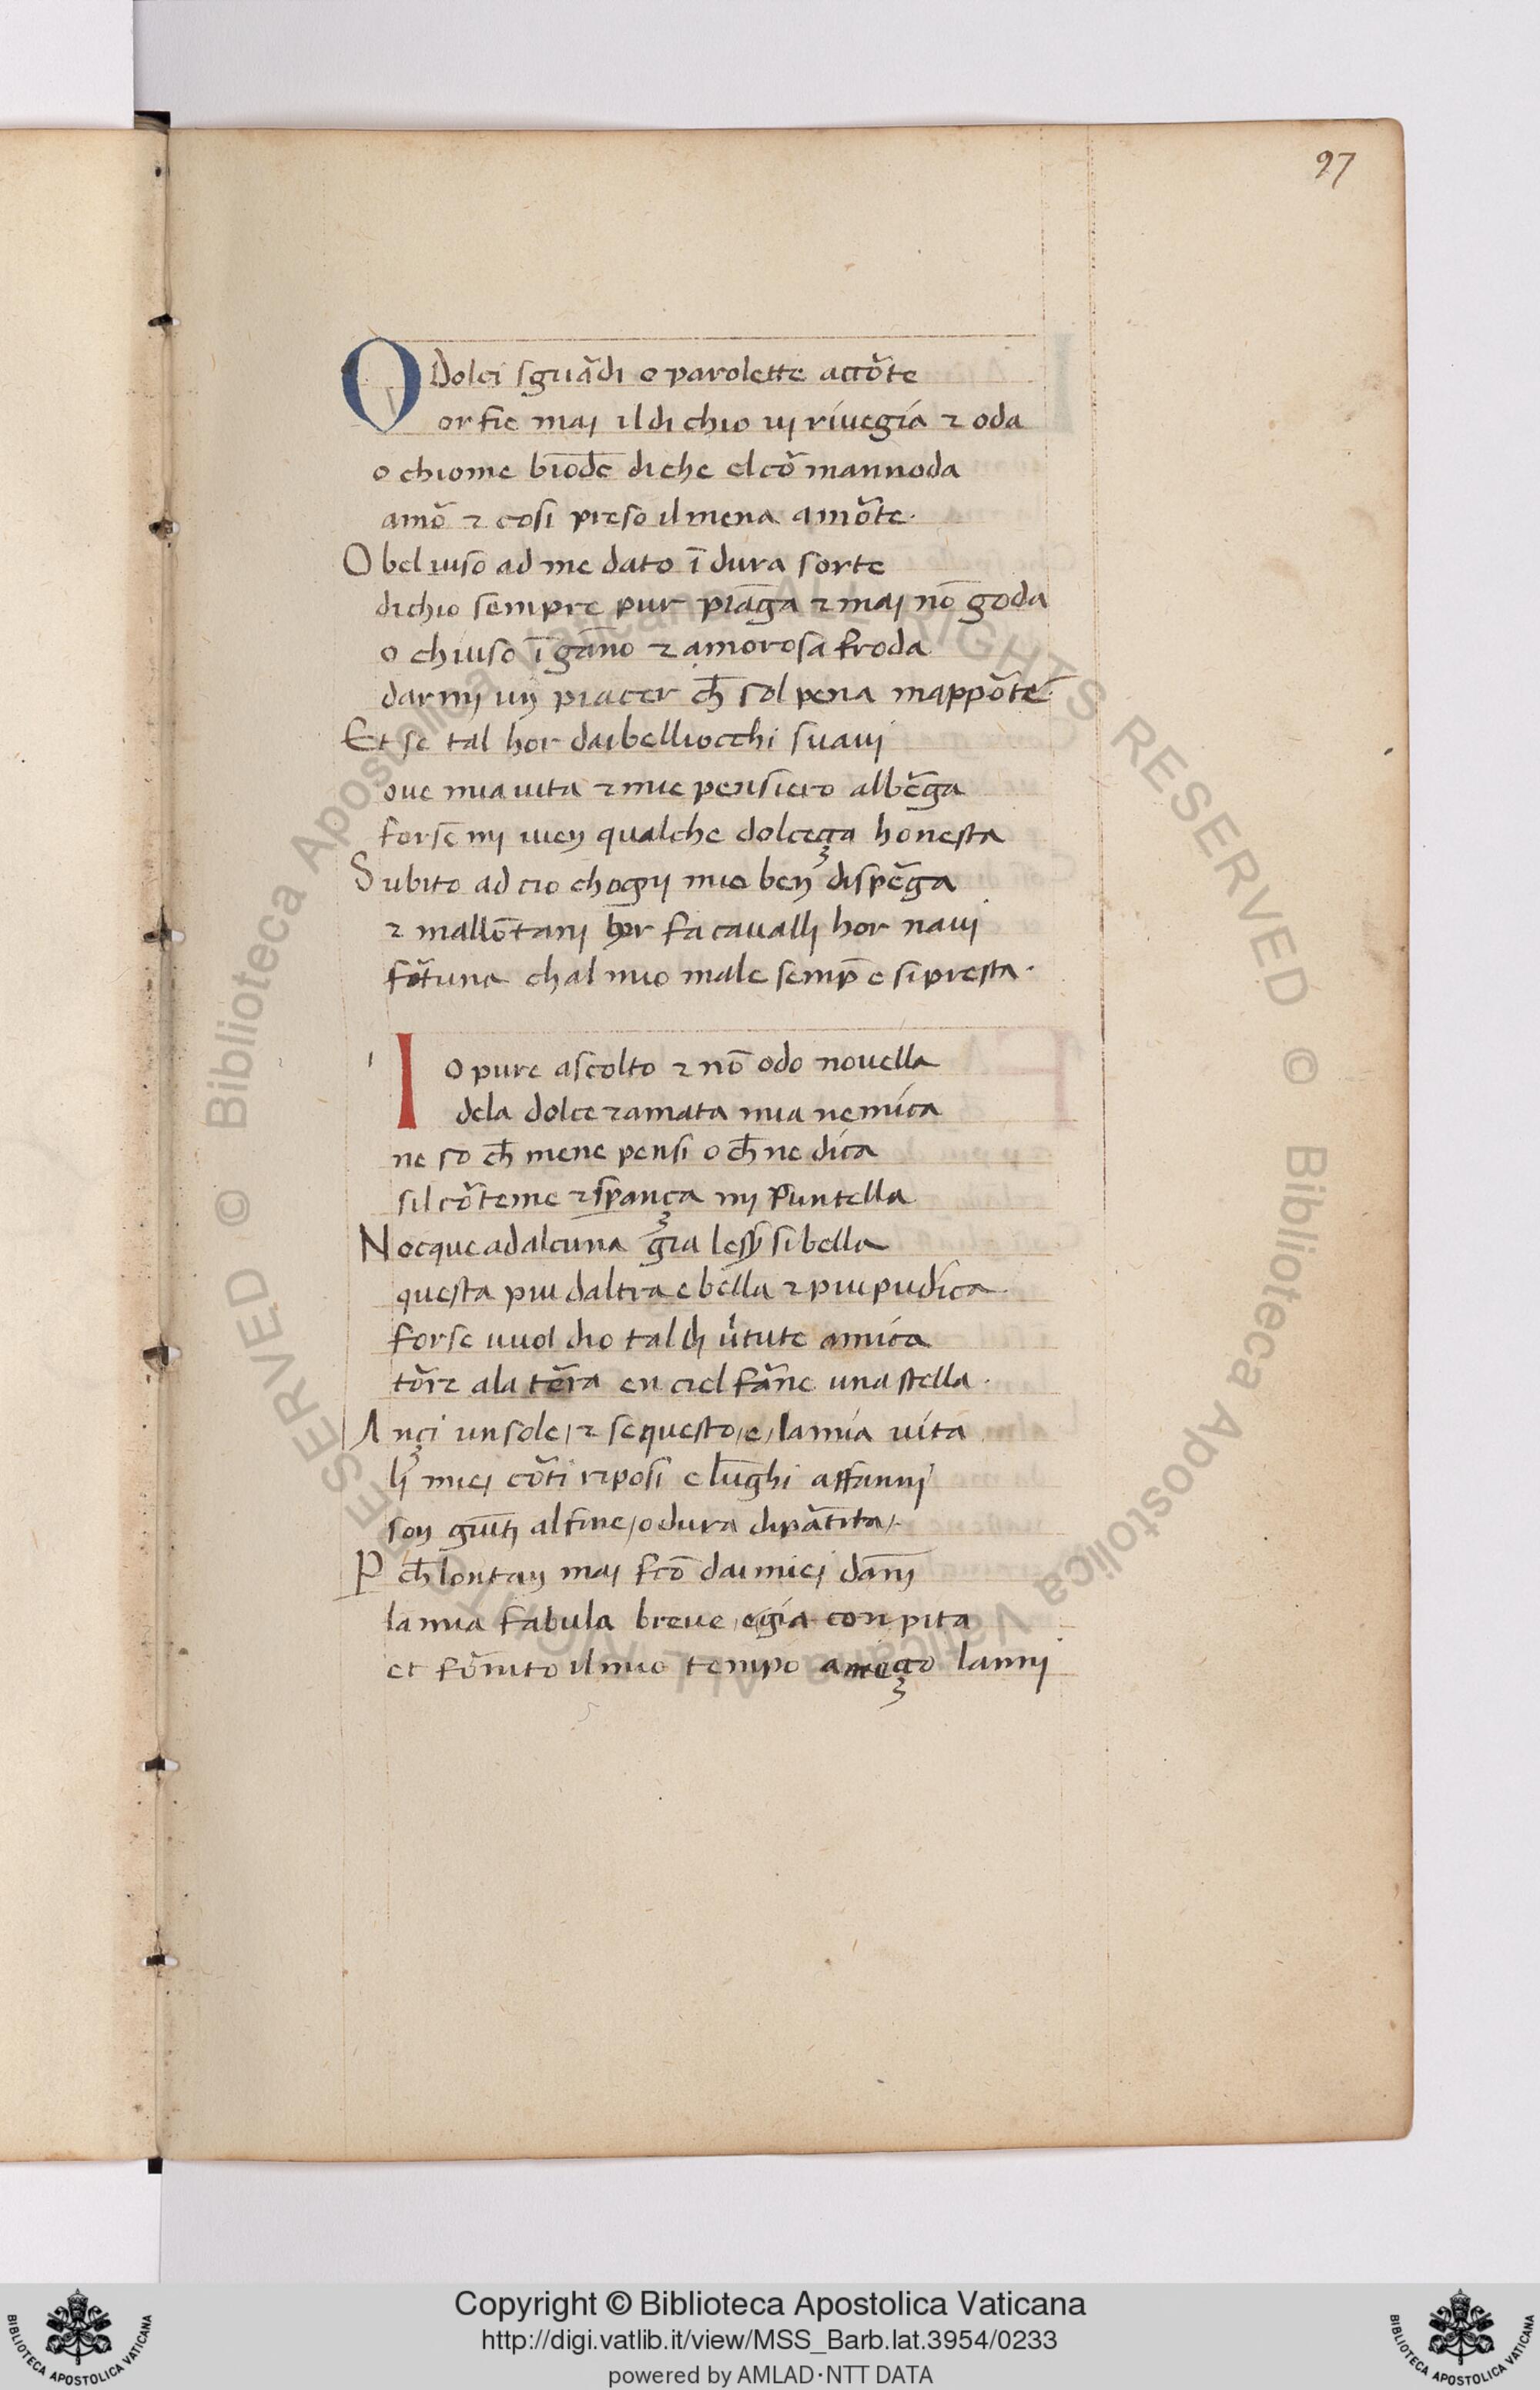 97
O Dolci sguãdi o parolette accõte
or fie maj il di chio uj riuegia ⁊ oda
o chiome biõde di che el cõ mannoda
amõ ⁊ cosi preso il mena amõte.
O bel uiso ad me dato ĩ dura sorte
di chio sempre pur piãga ⁊ maj nõ goda
o chiuso ĩgãno ⁊ amorosa froda
dar mj uŋ piacer ch̃ sol pena mappõte.
Et se tal hor dai belli occhi suauj
oue mia uita ⁊ mie pensiero albẽga
forse mj uieŋ qualche dolceça honesta
Subito ad cio chognj mio beŋ dispẽga
⁊ mallõtanj hor fa caualli hor nauj
fõtuna chal mio male semp̃ e si presta.
Io pure ascolto ⁊ nõ odo nouella
dela dolce ⁊ amata mia nemica
ne so ch̃ mene pensi o ch̃ ne dica
sil cõ teme ⁊ sp̃ança mj puntella
Nocque ad alcuna gia lesß si bella
questa piu daltra e bella ⁊ piu pudica
forse uuol dio tal di ũtute amica
tõre ala tẽra en ciel fãne una stella.
Ançi un sole / ⁊ se questo / e / la mia uita
lj miej cõti riposi e lũghi affannj
soŋ giũtj al fine / o dura dipãtita /.
P ch̃ lontaŋ maj fcõ dai miej dãnj
la mia fabula breue e gia conpita
et fõnito il mio tempo a meço lannj
© Biblioteca Apostolica Vaticana ALL RIGHTS RESERVED © Biblioteca Apostolica Vaticana ALL RIGHTS RESERVED
Copyright © Biblioteca Apostolica Vaticana
http://digi.vatlib.it/view/MSS_Barb.lat.3954/0233
powered by AMLAD·NTT DATA
BIBLIOTECA APOSTOLICA VATICANA
BIBLIOTECA APOSTOLICA VATICANA